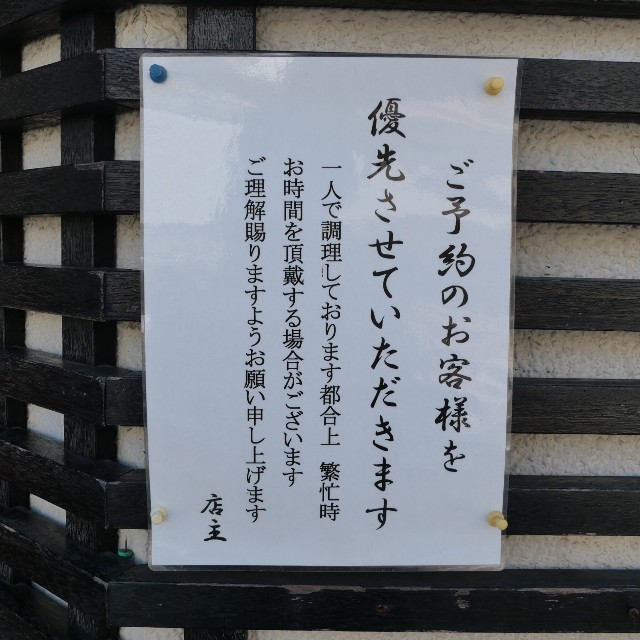 ご予約のお客様を
優先させていただきます
一人で調理しております都合上　繁忙時
お時間を頂戴する場合がございます
ご理解賜りますようお願い申し上げます
店主